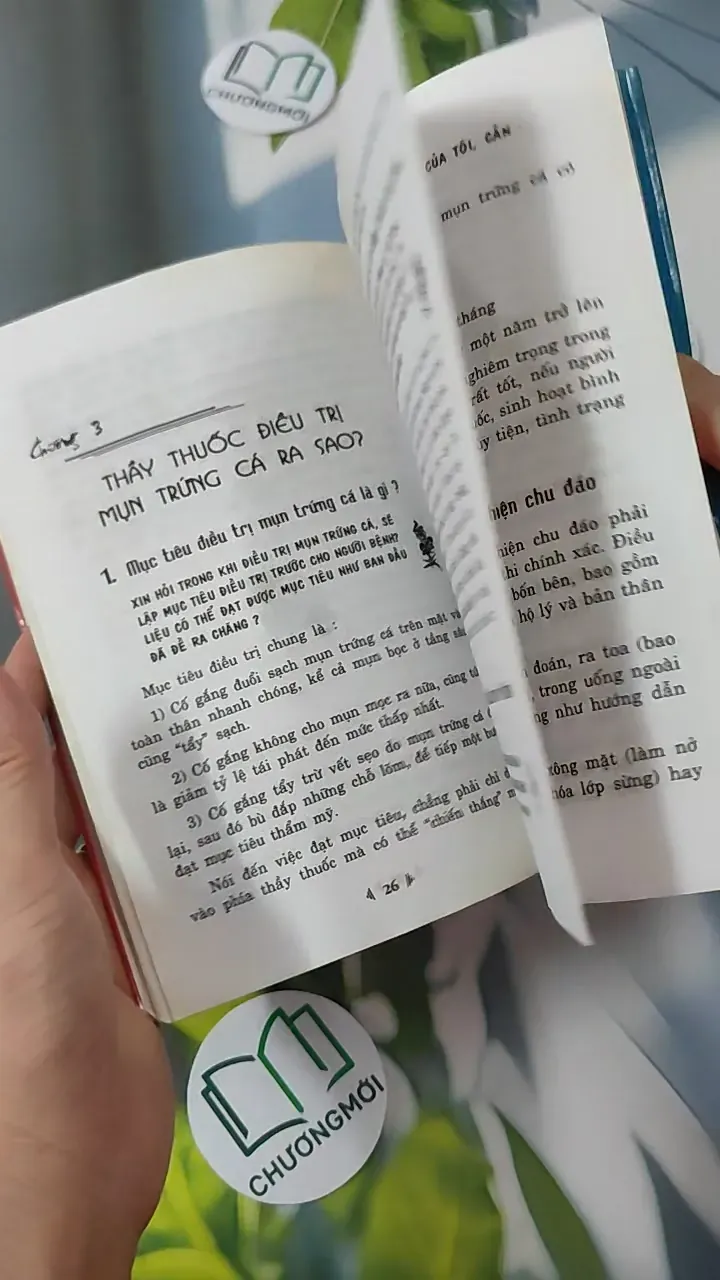 CHƯƠNGMỚI
Chương 3
THẦY THUỐC ĐIỀU TRỊ
MỤN TRỨNG CÁ RA SAO?
1. Mục tiêu điều trị mụn trứng cá là gì ?
XIN HỎI TRONG KHI ĐIỀU TRỊ MỤN TRỨNG CÁ, SẼ
LẬP MỤC TIÊU ĐIỀU TRỊ TRƯỚC CHO NGƯỜI BỆNH?
LIỆU CÓ THỂ ĐẠT ĐƯỢC MỤC TIÊU NHƯ BAN ĐẦU
ĐÃ ĐỀ RA CHĂNG ?
Mục tiêu điều trị chung là :
1) Cố gắng đuổi sạch mụn trứng cá trên mặt và
toàn thân nhanh chóng, kể cả mụn bọc ở tầng
cũng "tẩy" sạch.
2) Cố gắng không cho mụn mọc ra nữa, cũng
là giảm tỷ lệ tái phát đến mức thấp nhất.
3) Cố gắng tẩy trừ vết sẹo do mụn trứng cá
lại, sau đó bù đắp những chỗ lõm, để tiếp một
đạt mục tiêu thẩm mỹ.
Nói đến việc đạt mục tiêu, chẳng phải chỉ
vào phía thầy thuốc mà có thể "chiến thắng"
26
CỦA TÔI, CẦN
mụn trứng cá
tháng
một năm trở lên
nghiêm trọng trong
rất tốt, nếu người
sinh hoạt bình
tiện, tình trạng
chu đáo
chu đáo phải
chính xác. Điều
bốn bên, bao gồm
hộ lý và bản thân
đoán, ra toa (bao
trong uống ngoài
như hướng dẫn
xông mặt (làm nở
hóa lớp sừng) hay
CHƯƠNGMỚI